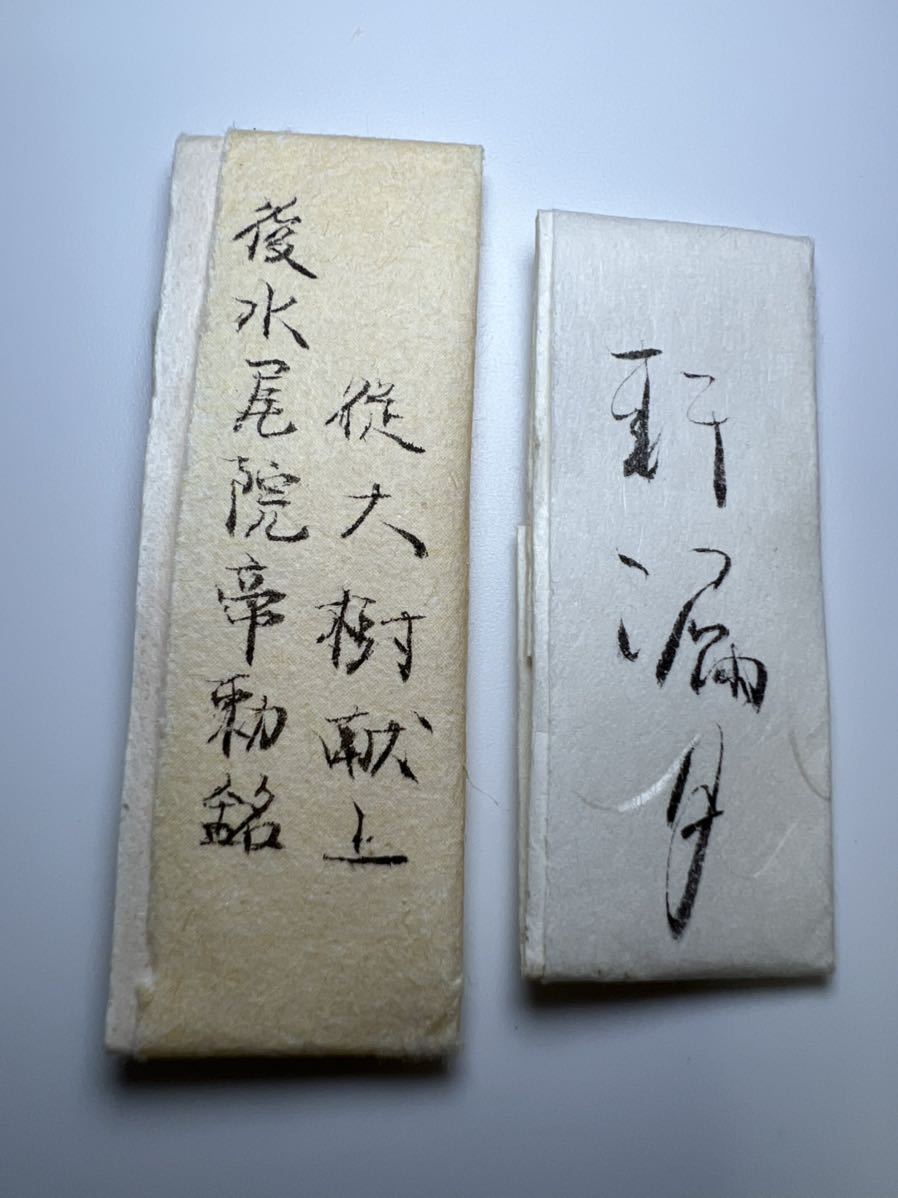 軒漏月
従大樹献上
後水尾院帝勅銘